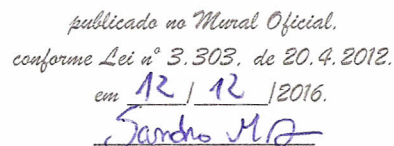 publicado no Mural Oficial.
conforme Lei nº 3.303, de 20.4.2012.
em 12/12/2016.
Sandro